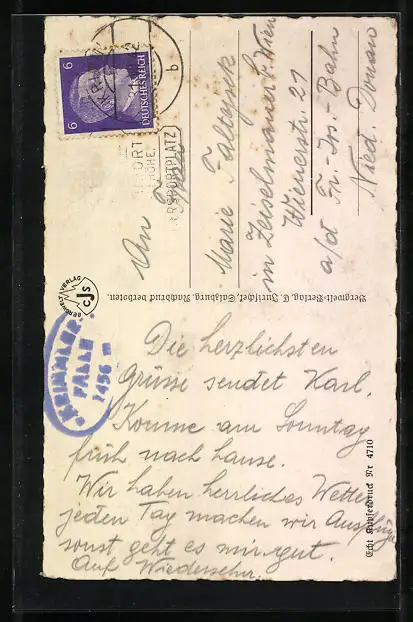 6
6
DEUTSCHES REICH
b
SPORTPLATZ
An
Marie Faltynik
in Zeiselmauer b. Wien
Wienerstr. 21
a/d Fr.-Jos.-Bahn
Nied. Donau
BERGWELT VERLAG
CJS
Bergwelt-Verlag, C. Jurischek, Salzburg, Nachdruck verboten.
KRIMMLER
FÄLLE
1456 m
Die herzlichsten
Grüsse sendet Karl.
Komme am Sonntag
früh nach hause.
Wir haben herrliches Wetter
jeden Tag machen wir Ausflüge
sonst geht es mir gut.
Auf Wiedersehn.
Echt Kupferdruck Nr 4710